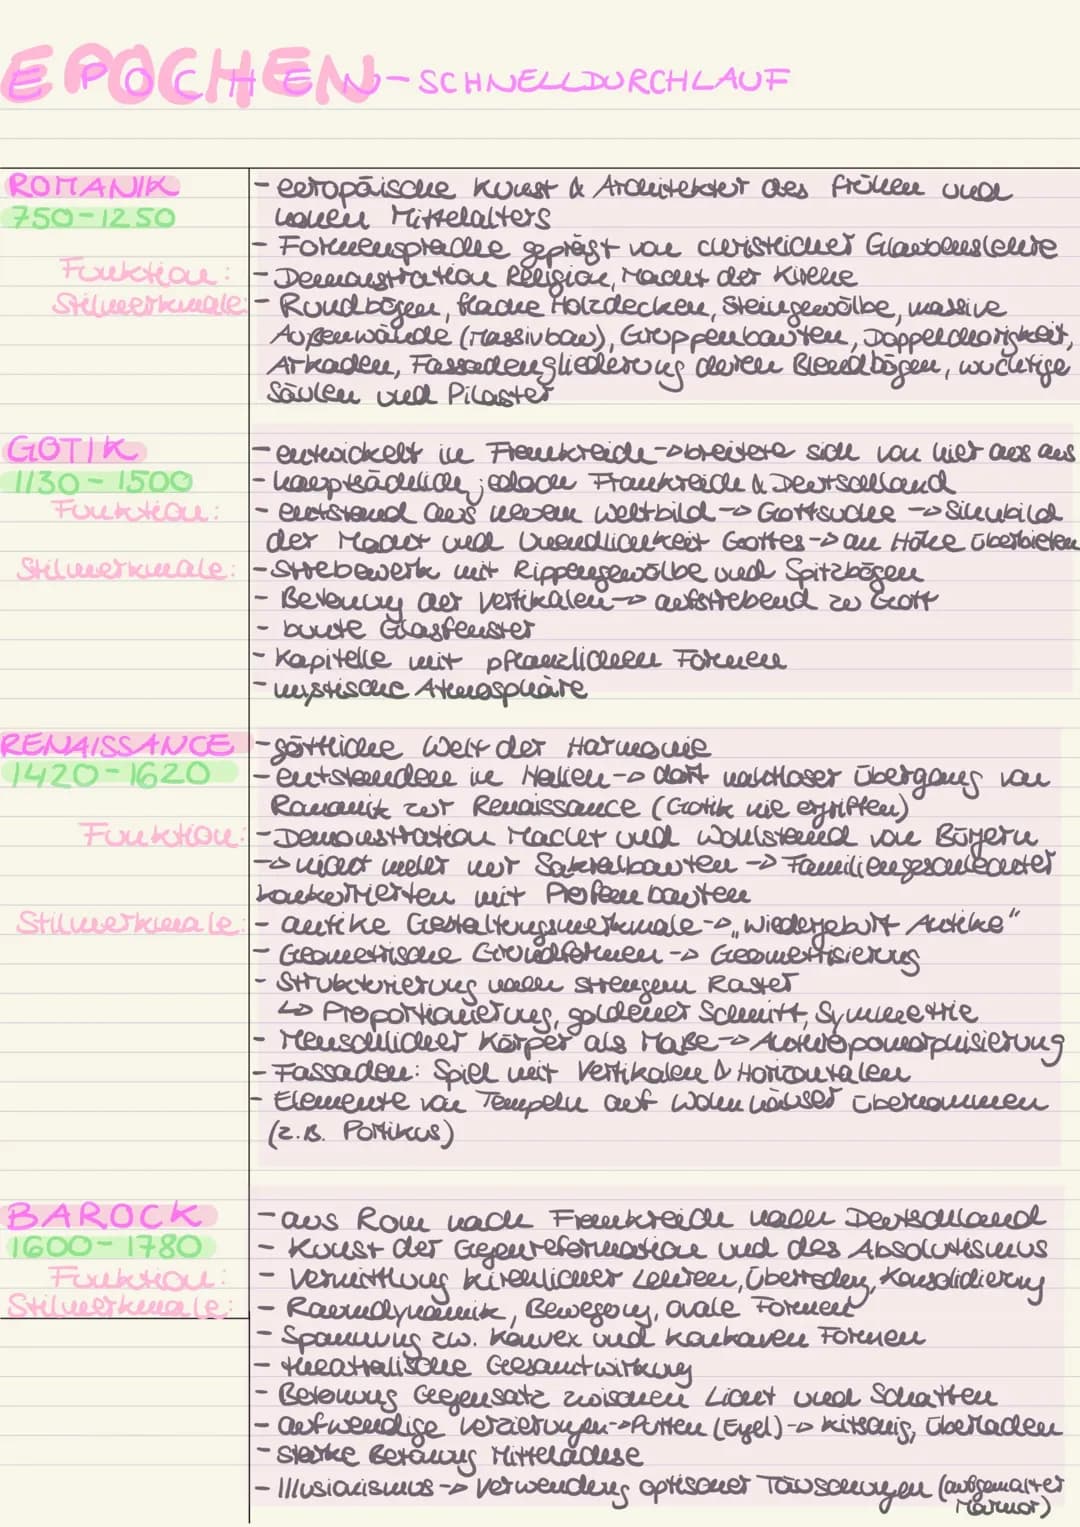 EPOCHEN-SCHNELLDURCHLAUF
ROMANIK
750-1250
- europäische Kunst & Architektur des frühen und
hohen Mittelalters
- Formensprache geprägt von christlicher Glaubenslehre
Funktion:
- Demonstration Religion, Macht der Kirche
Stilmerkmale:
- Rundbögen, flache Holzdecken, Steingewölbe, massive
Außenwände (Massivbau), Gruppenbauten, Doppelchorigkeit,
Arkaden, Fassadengliederung durch Blendbögen, wuchtige
Säulen und Pilaster
GOTIK
1130-1500
- entwickelt in Frankreich -> breitete sich von hier aus aus
- hauptsächlich jedoch Frankreich & Deutschland
Funktion:
- entstand aus neuem Weltbild -> Gottsuche -> Sinnbild
der Macht und Unendlichkeit Gottes -> an Höhe überbieten
Stilmerkmale:
- Strebewerk mit Rippengewölbe und Spitzbögen
- Betonung der Vertikalen -> aufstrebend zu Gott
- bunte Glasfenster
- Kapitelle mit pflanzlichen Formen
- mystische Atmosphäre
RENAISSANCE
1420-1620
- göttliche Welt der Harmonie
- entstanden in Italien -> dort nahtloser Übergang von
Romanik zur Renaissance (Gotik nie ergriffen)
Funktion:
- Demonstration Macht und Wohlstand von Bürgern
-> nicht mehr nur Sakralbauten -> Familiengeschlechter
konkurrierten mit Profanbauten
Stilmerkmale:
- antike Gestaltungsmerkmale -> „Wiedergeburt Antike"
- Geometrische Grundformen -> Geometrisierung
- Strukturierung nach strengem Raster
↳ Proportionierung, goldener Schnitt, Symmetrie
- Menschlicher Körper als Maße -> Anthropomorphisierung
- Fassaden: Spiel mit Vertikalen & Horizontalen
- Elemente von Tempeln auf Wohnhäuser übernommen
(z.B. Portikus)
BAROCK
1600-1780
- aus Rom nach Frankreich nach Deutschland
- Kunst der Gegenreformation und des Absolutismus
Funktion:
- Vermittlung kirchlicher Lehren, Überreden, Konsolidierung
Stilmerkmale:
- Raumdynamik, Bewegung, ovale Formen
- Spannung zw. konvex und konkaven Formen
- theatralische Gesamtwirkung
- Betonung Gegensatz zwischen Licht und Schatten
- aufwendige Verzierungen -> Putten (Engel) -> kitschig, überladen
- starke Betonung Mittelachse
- Illusionismus -> Verwendung optischer Täuschungen (aufgemalter
Marmor)